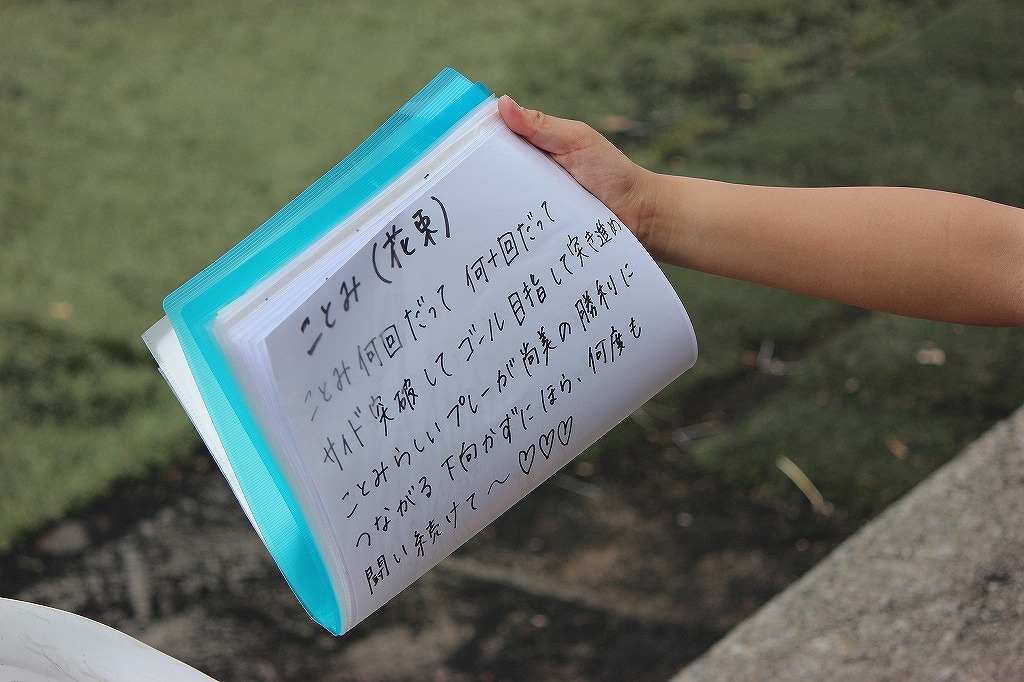 ことみ(花束)
ことみ何回だって 何十回だって
サイド突破してゴール目指して突き進め
ことみらしいプレーが尚美の勝利に
つながる下向かずにほら、何度も
闘い続けて〜♡♡♡